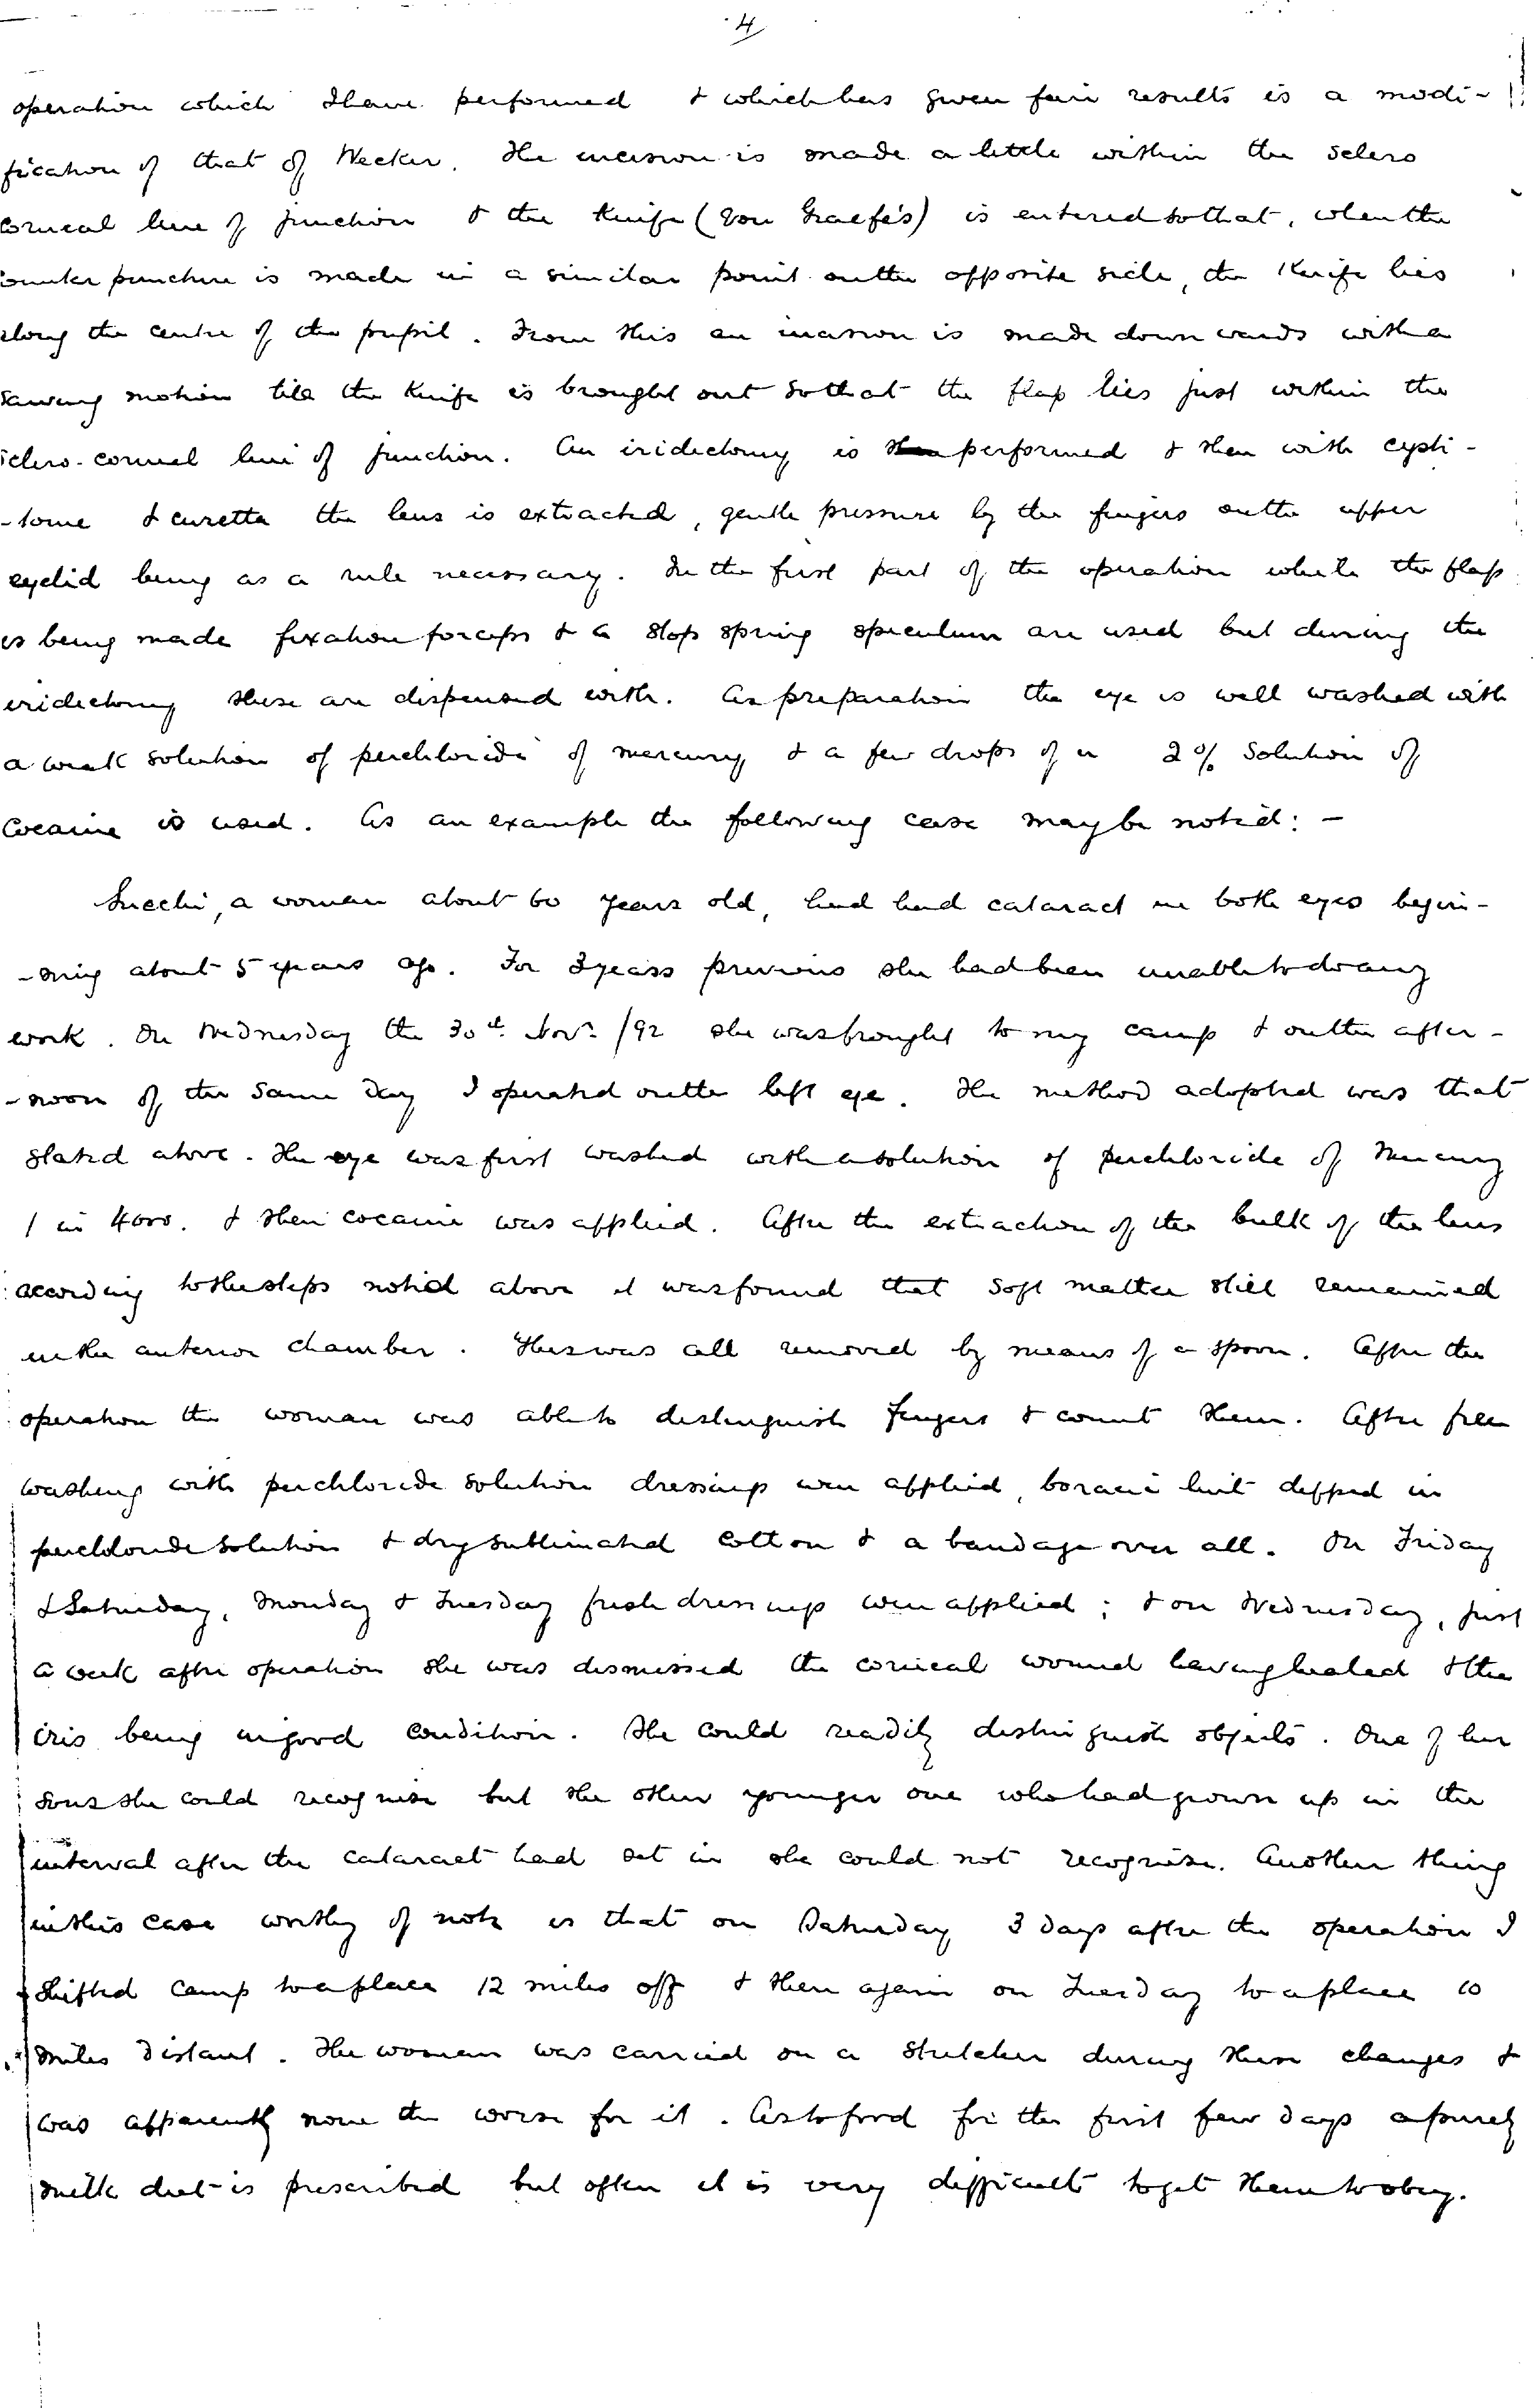 4
operation which I have performed & which has given fair results is a modi-
fication of that of Wecker. The incision is made a little within the sclero
corneal line of junction & the knife (Von Graefe's) is entered so that, when the
counter puncture is made in a similar point on the opposite side, the knife lies
along the centre of the pupil. From this an incision is made downwards with a
sawing motion till the knife is brought out so that the flap lies just within the
sclero-corneal line of junction. An iridectomy is performed & then with cysti-
-tome & curette the lens is extracted, gentle pressure by the fingers on the upper
eyelid being as a rule necessary. In the first part of the operation while the flap
is being made fixation forceps & a stop spring speculum are used but during the
iridectomy these are dispensed with. As preparation the eye is well washed with
a weak solution of perchloride of mercury & a few drops of a 2% solution of
Cocaine is used. As an example the following case may be noted: -
Succhi, a woman about 60 years old, had had cataract in both eyes begin-
-ning about 5 years ago. For 3 years previous she had been unable to do any
work. On Wednesday the 30th Novr /92 she was brought to my camp & on the after-
-noon of the same day I operated on the left eye. The method adopted was that
stated above. The eye was first washed with a solution of perchloride of Mercury
1 in 4000. & then cocaine was applied. After the extraction of the bulk of the lens
according to the steps noted above it was found that soft matter still remained
in the anterior chamber. This was all removed by means of a spoon. After the
operation the woman was able to distinguish fingers & count them. After free
washing with perchloride solution dressings were applied, boracic lint dipped in
perchloride solution & dry sublimated cotton & a bandage over all. On Friday
& Saturday, Monday & Tuesday fresh dressings were applied; & on Wednesday, just
a week after operation she was dismissed the corneal wound having healed & the
iris being in good condition. She could readily distinguish objects. One of her
sons she could recognise but the other younger one who had grown up in the
interval after the cataract had set in she could not recognise. Another thing
in this case worthy of note is that on Saturday 3 days after the operation I
shifted camp to a place 12 miles off & then again on Tuesday to a place 10
miles distant. The woman was carried on a stretcher during these changes &
was apparently none the worse for it. As to food for the first few days a purely
milk diet is prescribed but often it is very difficult to get them to obey.